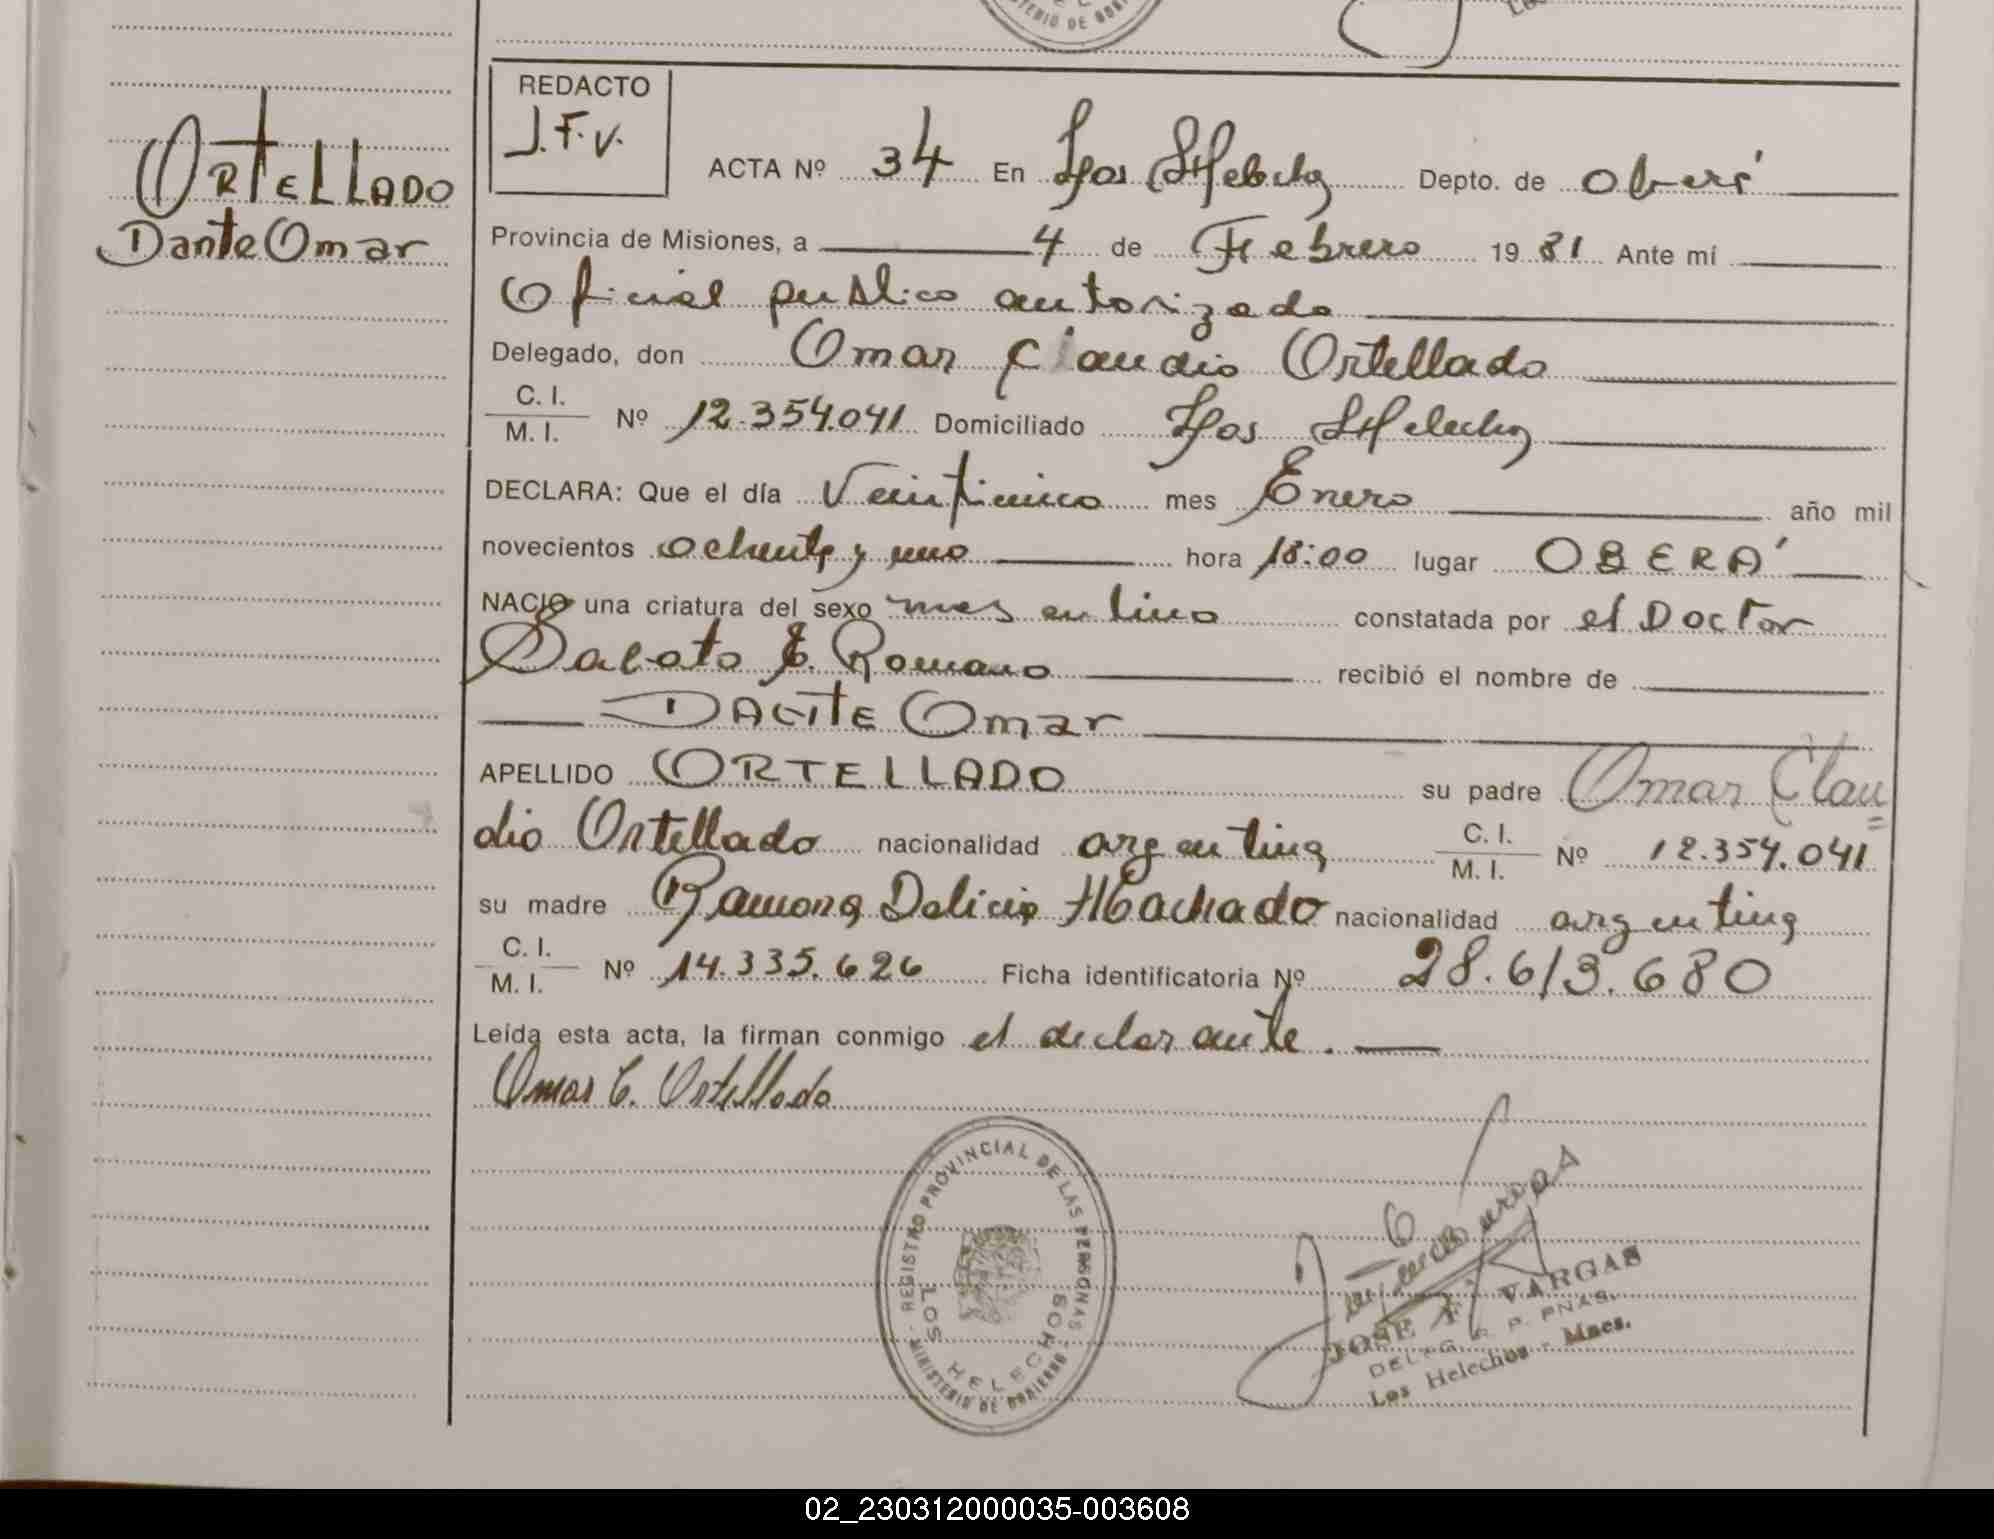 REDACTO
J.F.V.
ORTELLADO
Dante Omar
ACTA Nº 34 En Los Helechos Depto. de Oberá
Provincia de Misiones, a 4 de Febrero 19 81 Ante mí
Oficial publico autorizado
Delegado, don Omar Claudio Ortellado
C. I.
M. I. Nº 12.354.041 Domiciliado Los Helechos
DECLARA: Que el día Veinticinco mes Enero año mil
novecientos ochenta y uno hora 18:00 lugar OBERÁ
NACIO una criatura del sexo masculino constatada por el Doctor
Romano recibió el nombre de
DANTE Omar
APELLIDO ORTELLADO su padre Omar Clau
dio Ortellado nacionalidad argentina C. I.
M. I. Nº 12.354.041
su madre Ramona Delicia Machado nacionalidad argentina
C. I.
M. I. Nº 14.335.626 Ficha identificatoria Nº 28.613.680
Leída esta acta, la firman conmigo el declarante.
Omar C. Ortellado
REGISTRO PROVINCIAL DE LAS PERSONAS
LOS HELECHOS
MINISTERIO DE GOBIERNO
JOSE F. VARGAS
DELEG. R. P. PNAS.
Los Helechos - Mnes.
MINISTERIO DE GOBIERNO
02_230312000035-003608